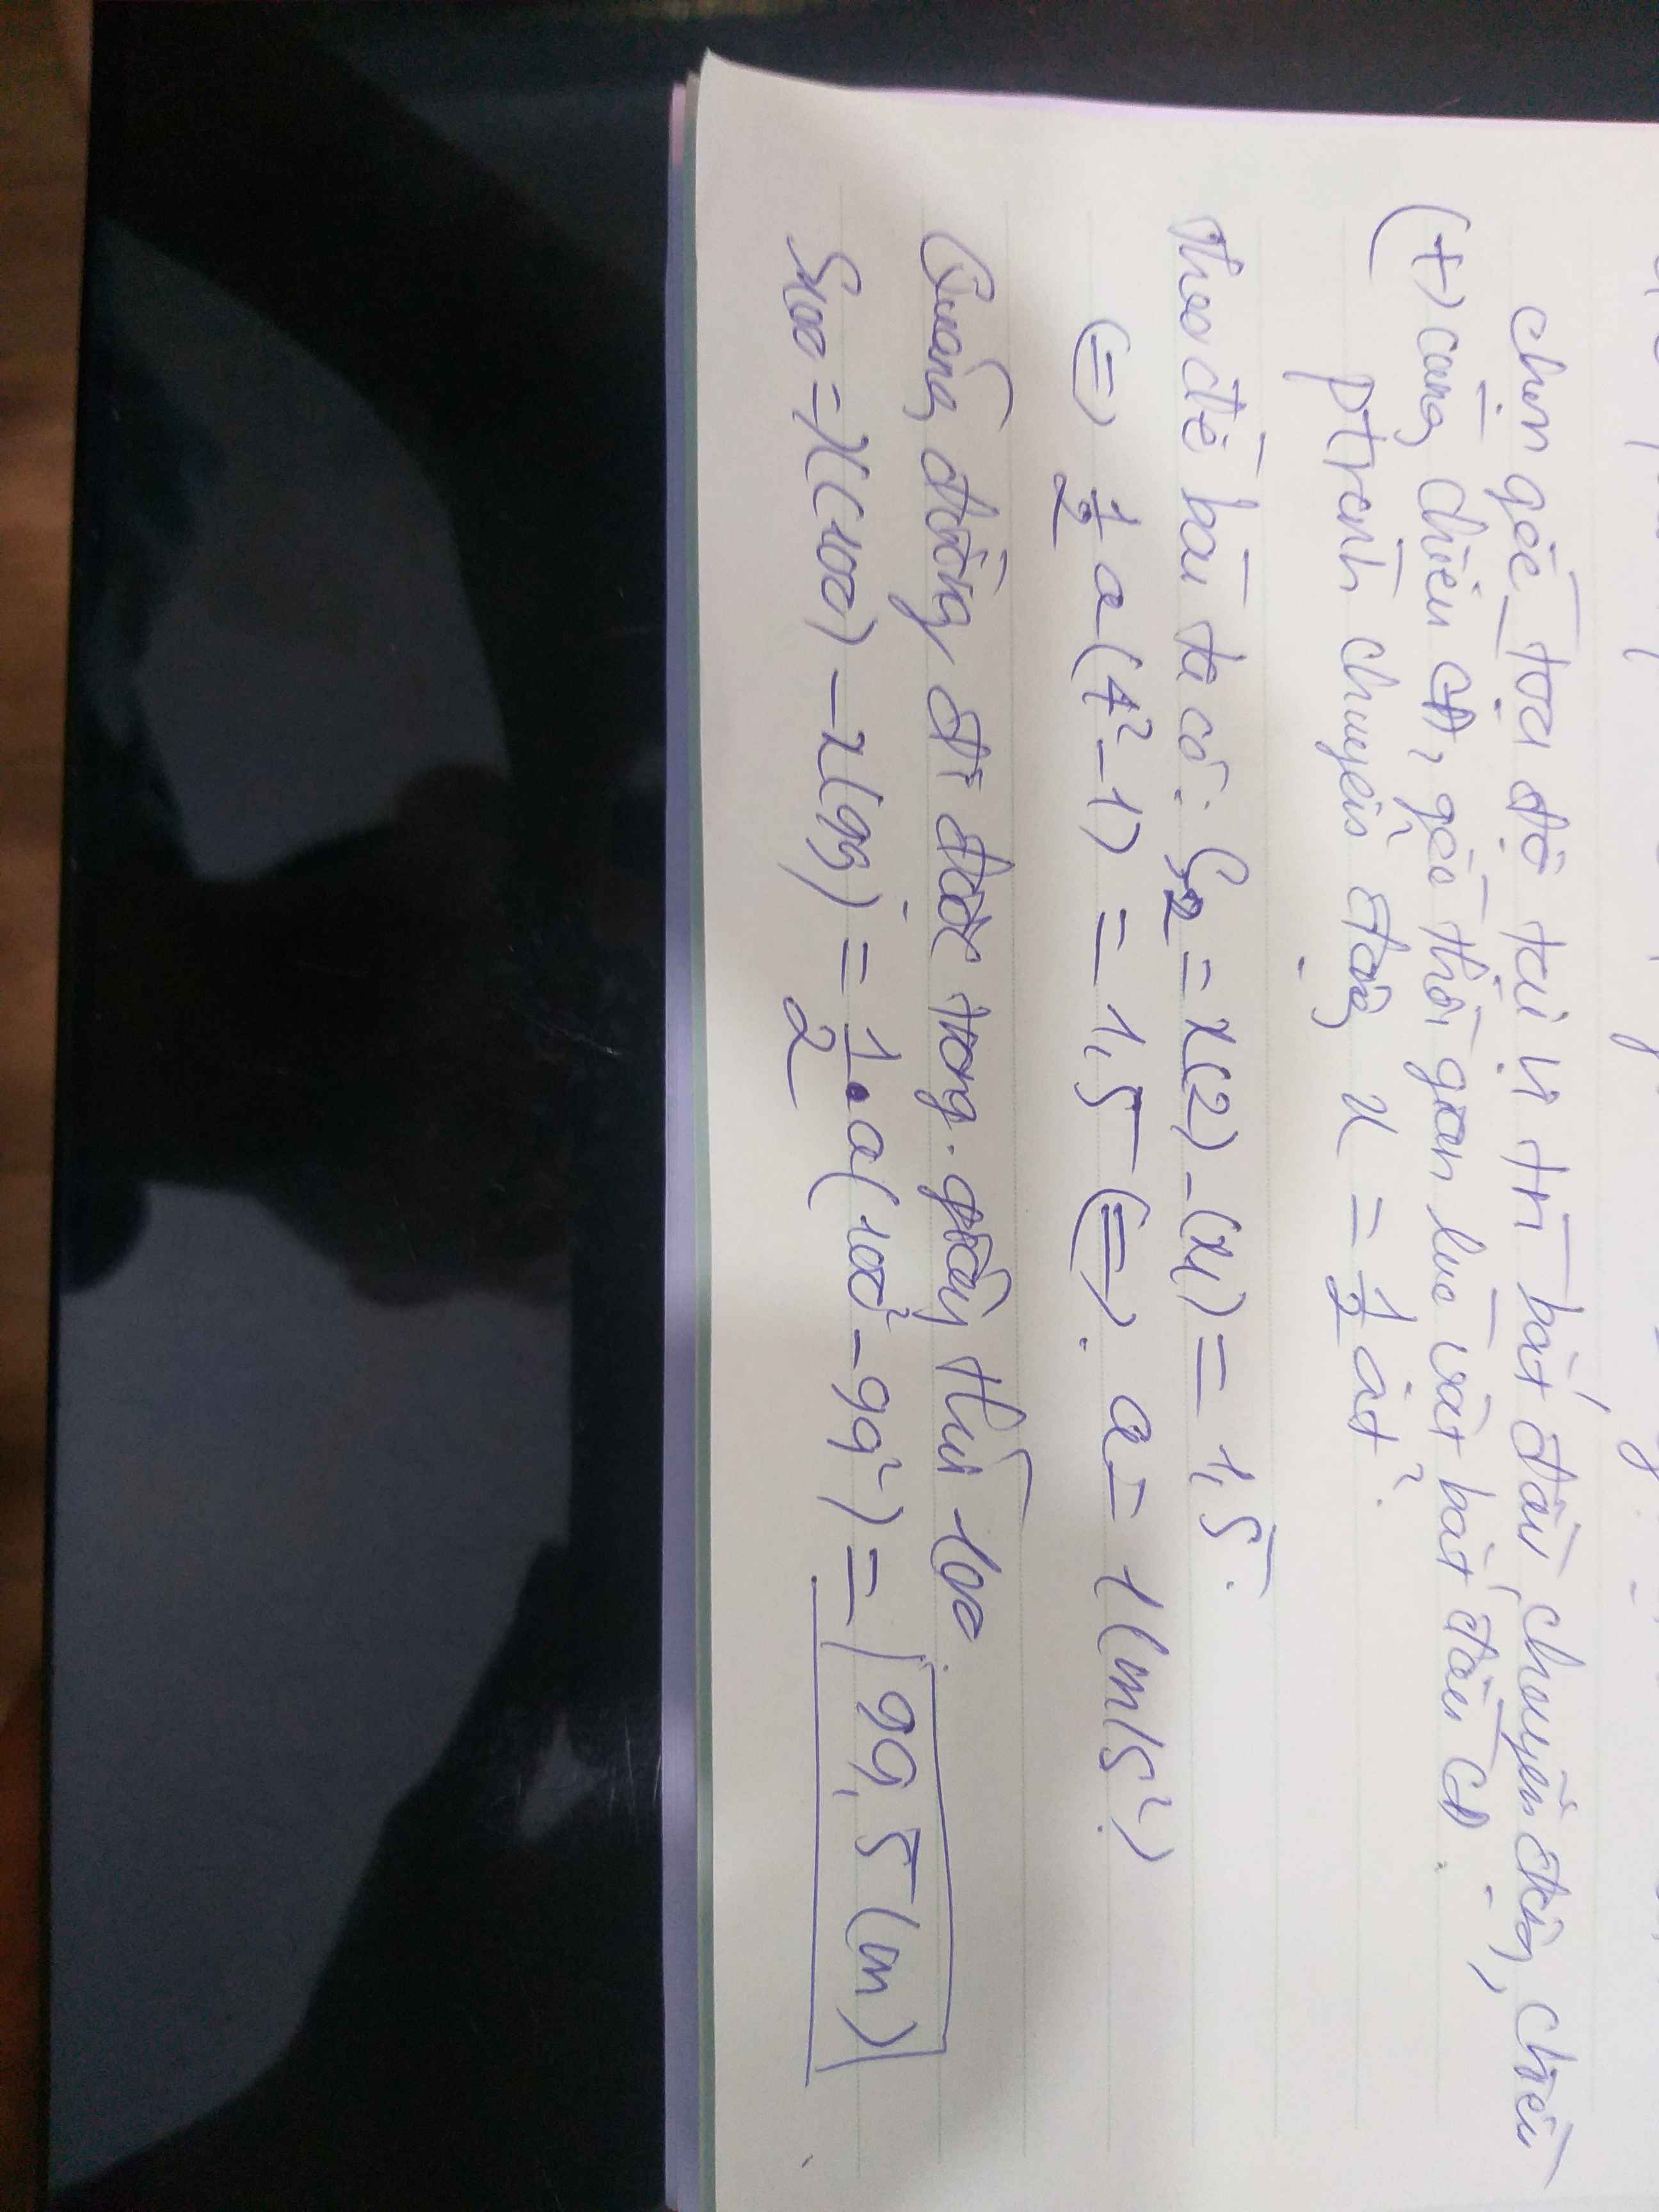 chọn gốc tọa độ tại vị trí bắt đầu chuyển động, chiều
(+) cùng chiều cđ, gốc thời gian lúc vật bắt đầu cđ.
ptrình chuyển động x = 1/2 at².
theo đề bài ta có: S₂ = x(2) - (x1) = 1,5.
(=) 1/2 a(4² - 1) = 1,5 (=). a = 1 (m/s²)
Quãng đường đi được trong giây thứ 100.
S100 = x(100) - x(99) = 1/2 . a(100² - 99²) = 99,5 (m)